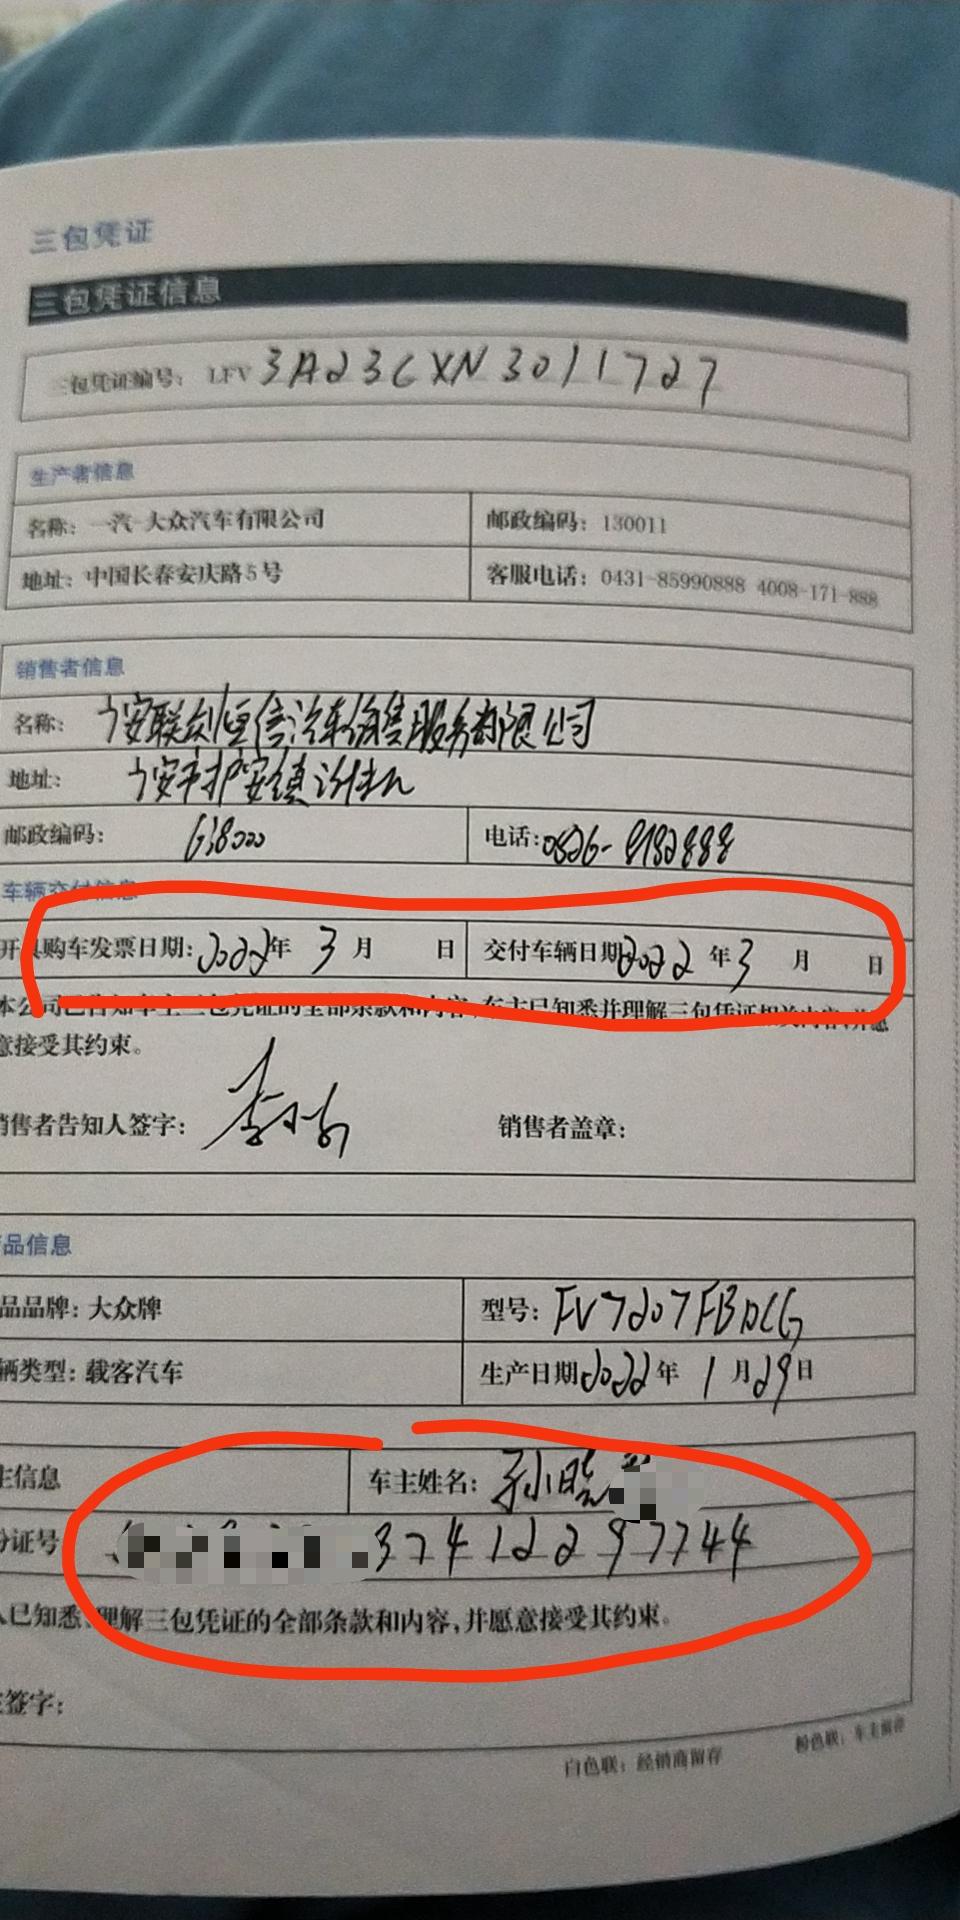 三包凭证
三包凭证信息
三包凭证编号: LFV 3A23CXN3011727
生产者信息
名称: 一汽-大众汽车有限公司 邮政编码: 130011
地址: 中国长春安庆路5号 客服电话: 0431-85990888 4008-171-888
销售者信息
名称: 广安联创恒信汽车销售服务有限公司
地址: 广安市护安镇
邮政编码: 638000 电话: 0826-8182888
车辆交付信息
开具购车发票日期: 2022年 3 月 日 交付车辆日期 2022 年 3 月 日
本公司已告知车主三包凭证的全部条款和内容, 车主已知悉并理解三包凭证相关内容,并愿
意接受其约束。
销售者告知人签字: 销售者盖章:
产品信息
品品牌: 大众牌 型号: FV7207FBDCG
辆类型: 载客汽车 生产日期 2022年 1 月 29 日
主信息 车主姓名: 孙晓
份证号 37412297744
人已知悉、理解三包凭证的全部条款和内容,并愿意接受其约束。
主签字:
白色联: 经销商留存 粉色联: 车主留存